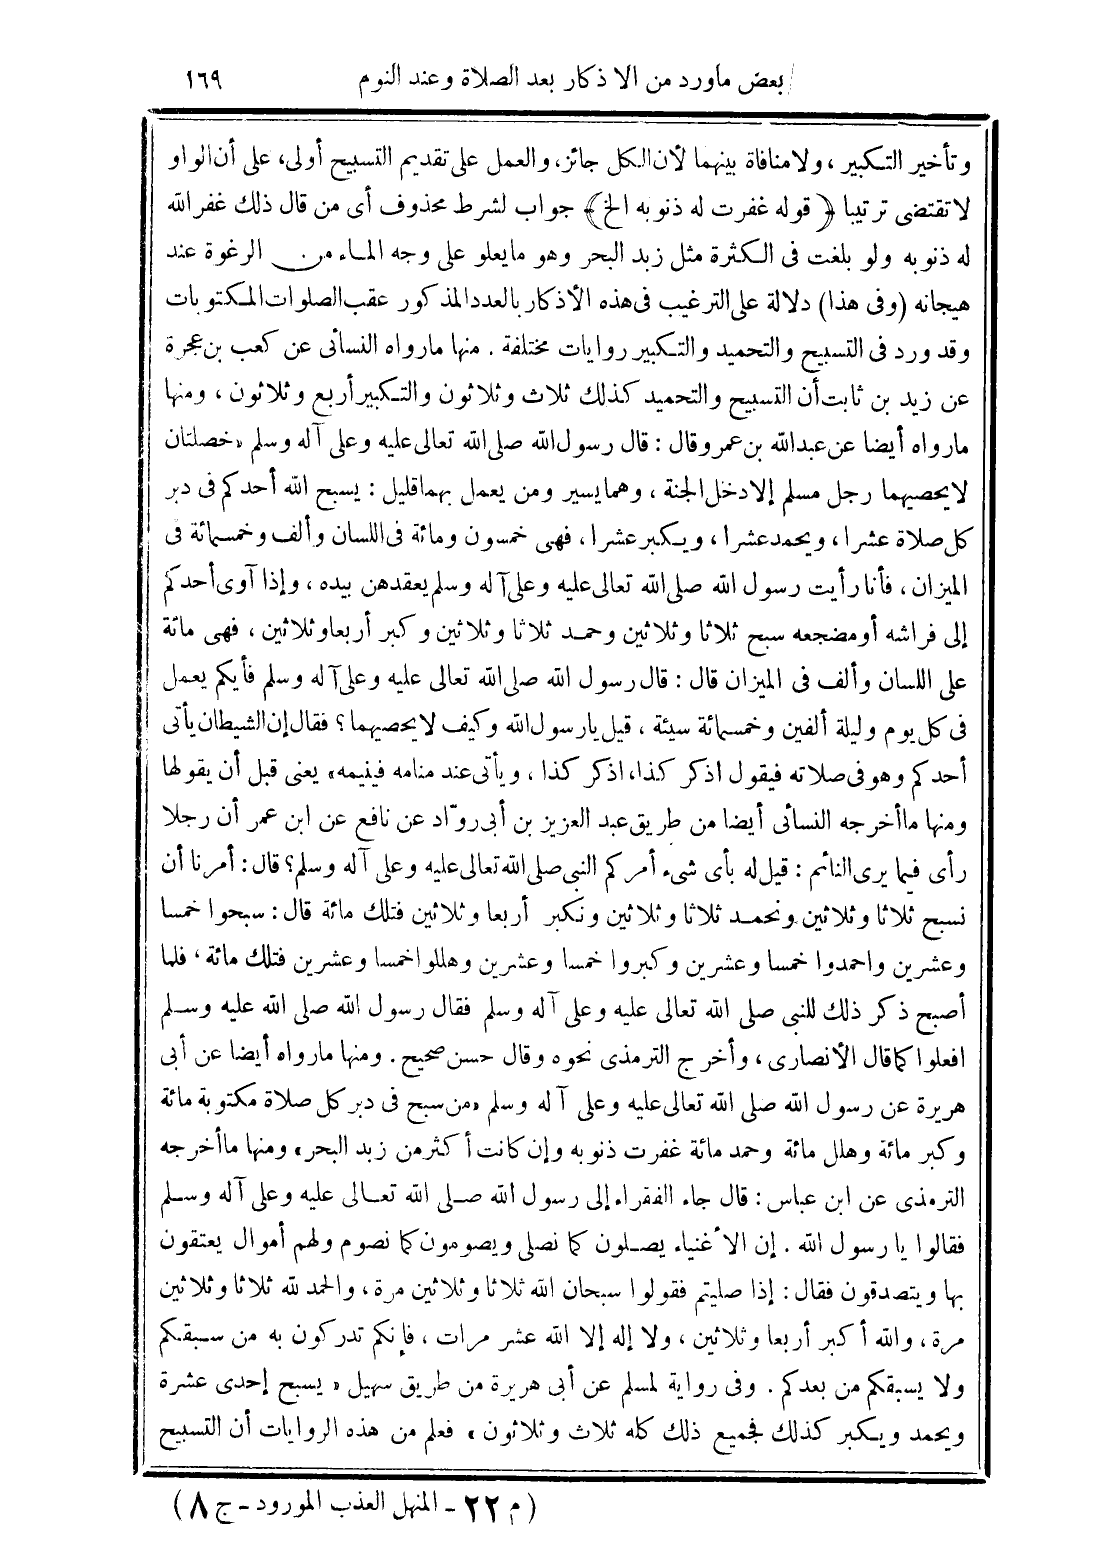 بعض ماورد من الاذكار بعد الصلاة وعند النوم ١٦٩
وتأخير التكبير ، ولا منافاة بينهما لأن الكل جائز، والعمل على تقديم التسبيح أولى، على أن الواو
لاتقتضى ترتيبا ﴿ قوله غفرت له ذنوبه الخ﴾ جواب لشرط محذوف أى من قال ذلك غفر الله
له ذنوبه ولو بلغت فى الكثرة مثل زبد البحر وهو مايعلو على وجه الماء من الرغوة عند
هيجانه (وفى هذا) دلالة على الترغيب فى هذه الأذكار بالعدد المذكور عقب الصلوات المكتوبات
وقد ورد فى التسبيح والتحميد والتكبير روايات مختلفة . منها مارواه النسائى عن كعب بن عجرة
عن زيد بن ثابت أن التسبيح والتحميد كذلك ثلاث وثلاثون والتكبير أربع وثلاثون ، ومنها
مارواه أيضا عن عبدالله بن عمرو قال : قال رسول الله صلى الله تعالى عليه وعلى آله وسلم «خصلتان
لايحصيهما رجل مسلم إلا دخل الجنة ، وهما يسير ومن يعمل بهما قليل : يسبح الله أحدكم فى دبر
كل صلاة عشرا ، ويحمد عشرا ، ويكبر عشرا ، فهى خمسون ومائة فى اللسان وألف وخمسمائة فى
الميزان ، فأنا رأيت رسول الله صلى الله تعالى عليه وعلى آله وسلم يعقدهن بيده ، وإذا آوى أحدكم
إلى فراشه أو مضجعه سبح ثلاثا وثلاثين وحمد ثلاثا وثلاثين وكبر أربعا وثلاثين ، فهى مائة
على اللسان وألف فى الميزان قال : قال رسول الله صلى الله تعالى عليه وعلى آله وسلم فأيكم يعمل
فى كل يوم وليلة ألفين وخمسمائة سيئة ، قيل يارسول الله وكيف لايحصيهما ؟ فقال إن الشيطان يأتى
أحدكم وهو فى صلاته فيقول اذكر كذا، اذكر كذا ، ويأتى عند منامه فينيمه» يعنى قبل أن يقولها
ومنها ما أخرجه النسائى أيضا من طريق عبد العزيز بن أبى روّاد عن نافع عن ابن عمر أن رجلا
رأى فيما يرى النائم : قيل له بأى شىء أمركم النبى صلى الله تعالى عليه وعلى آله وسلم؟ قال : أمرنا أن
نسبح ثلاثا وثلاثين ونحمد ثلاثا وثلاثين ونكبر أربعا وثلاثين فتلك مائة قال : سبحوا خمسا
وعشرين واحمدوا خمسا وعشرين وكبروا خمسا وعشرين وهللوا خمسا وعشرين فتلك مائة ، فلما
أصبح ذكر ذلك للنبى صلى الله تعالى عليه وعلى آله وسلم فقال رسول الله صلى الله عليه وسلم
افعلوا كما قال الأنصارى ، وأخرج الترمذى نحوه وقال حسن صحيح . ومنها مارواه أيضا عن أبى
هريرة عن رسول الله صلى الله تعالى عليه وعلى آله وسلم «من سبح فى دبر كل صلاة مكتوبة مائة
وكبر مائة وهلل مائة وحمد مائة غفرت ذنوبه وإن كانت أكثر من زبد البحر» ومنها ما أخرجه
الترمذى عن ابن عباس : قال جاء الفقراء إلى رسول الله صلى الله تعالى عليه وعلى آله وسلم
فقالوا يا رسول الله . إن الأغنياء يصلون كما نصلى ويصومون كما نصوم ولهم أموال يعتقون
بها ويتصدقون فقال : إذا صليتم فقولوا سبحان الله ثلاثا وثلاثين مرة ، والحمد لله ثلاثا وثلاثين
مرة ، والله أكبر أربعا وثلاثين ، ولا إله إلا الله عشر مرات ، فإنكم تدركون به من سبقكم
ولا يسبقكم من بعدكم . وفى رواية لمسلم عن أبى هريرة من طريق سهيل « يسبح إحدى عشرة
ويحمد ويكبر كذلك فجميع ذلك كله ثلاث وثلاثون » فعلم من هذه الروايات أن التسبيح
(م ٢٢ - المنهل العذب المورود - ج ٨)